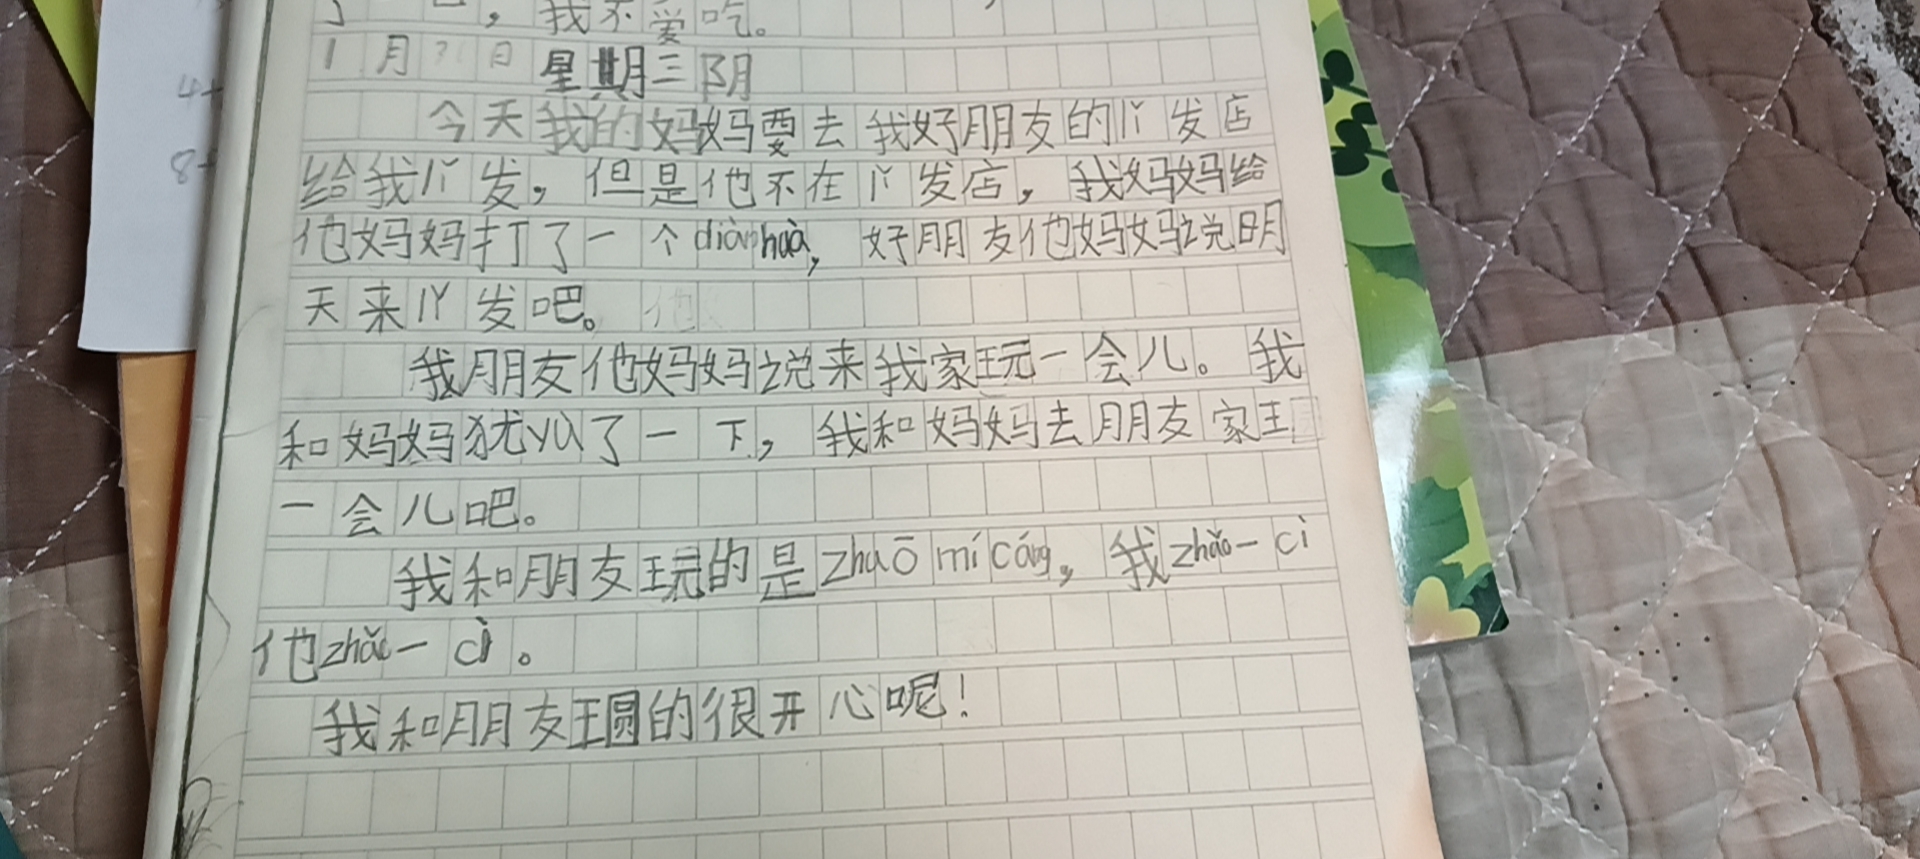 ，我不爱吃。
1月 日 星期三 阴
今天我的妈妈要去我好朋友的丫发店
给我丫发，但是他不在丫发店，我妈妈给
他妈妈打了一个diànhuà，好朋友他妈妈说明
天来丫发吧。
我朋友他妈妈说来我家玩一会儿。我
和妈妈犹yù了一下，我和妈妈去朋友家
一会儿吧。
我和朋友玩的是zhuō mí cáng，我zhǎo一cì
他zhǎo一cì。
我和朋友的很开心呢！
4+
8+